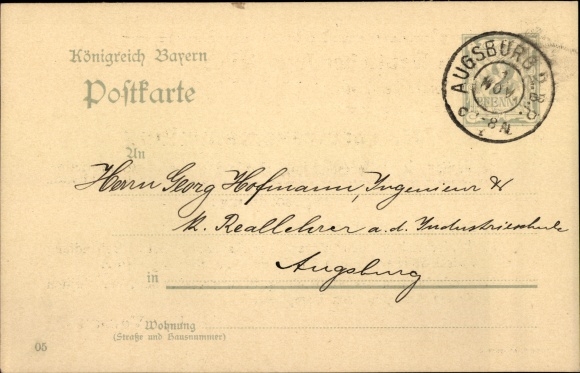 Königreich Bayern
Postkarte
AUGSBURG
1
NOV.
7-8 N.
PFENNIG
An
Herrn Georg Hofmann, Ingenieur &
k. Reallehrer a. d. Industrieschule
Augsburg
in
Wohnung
(Straße und Hausnummer)
05